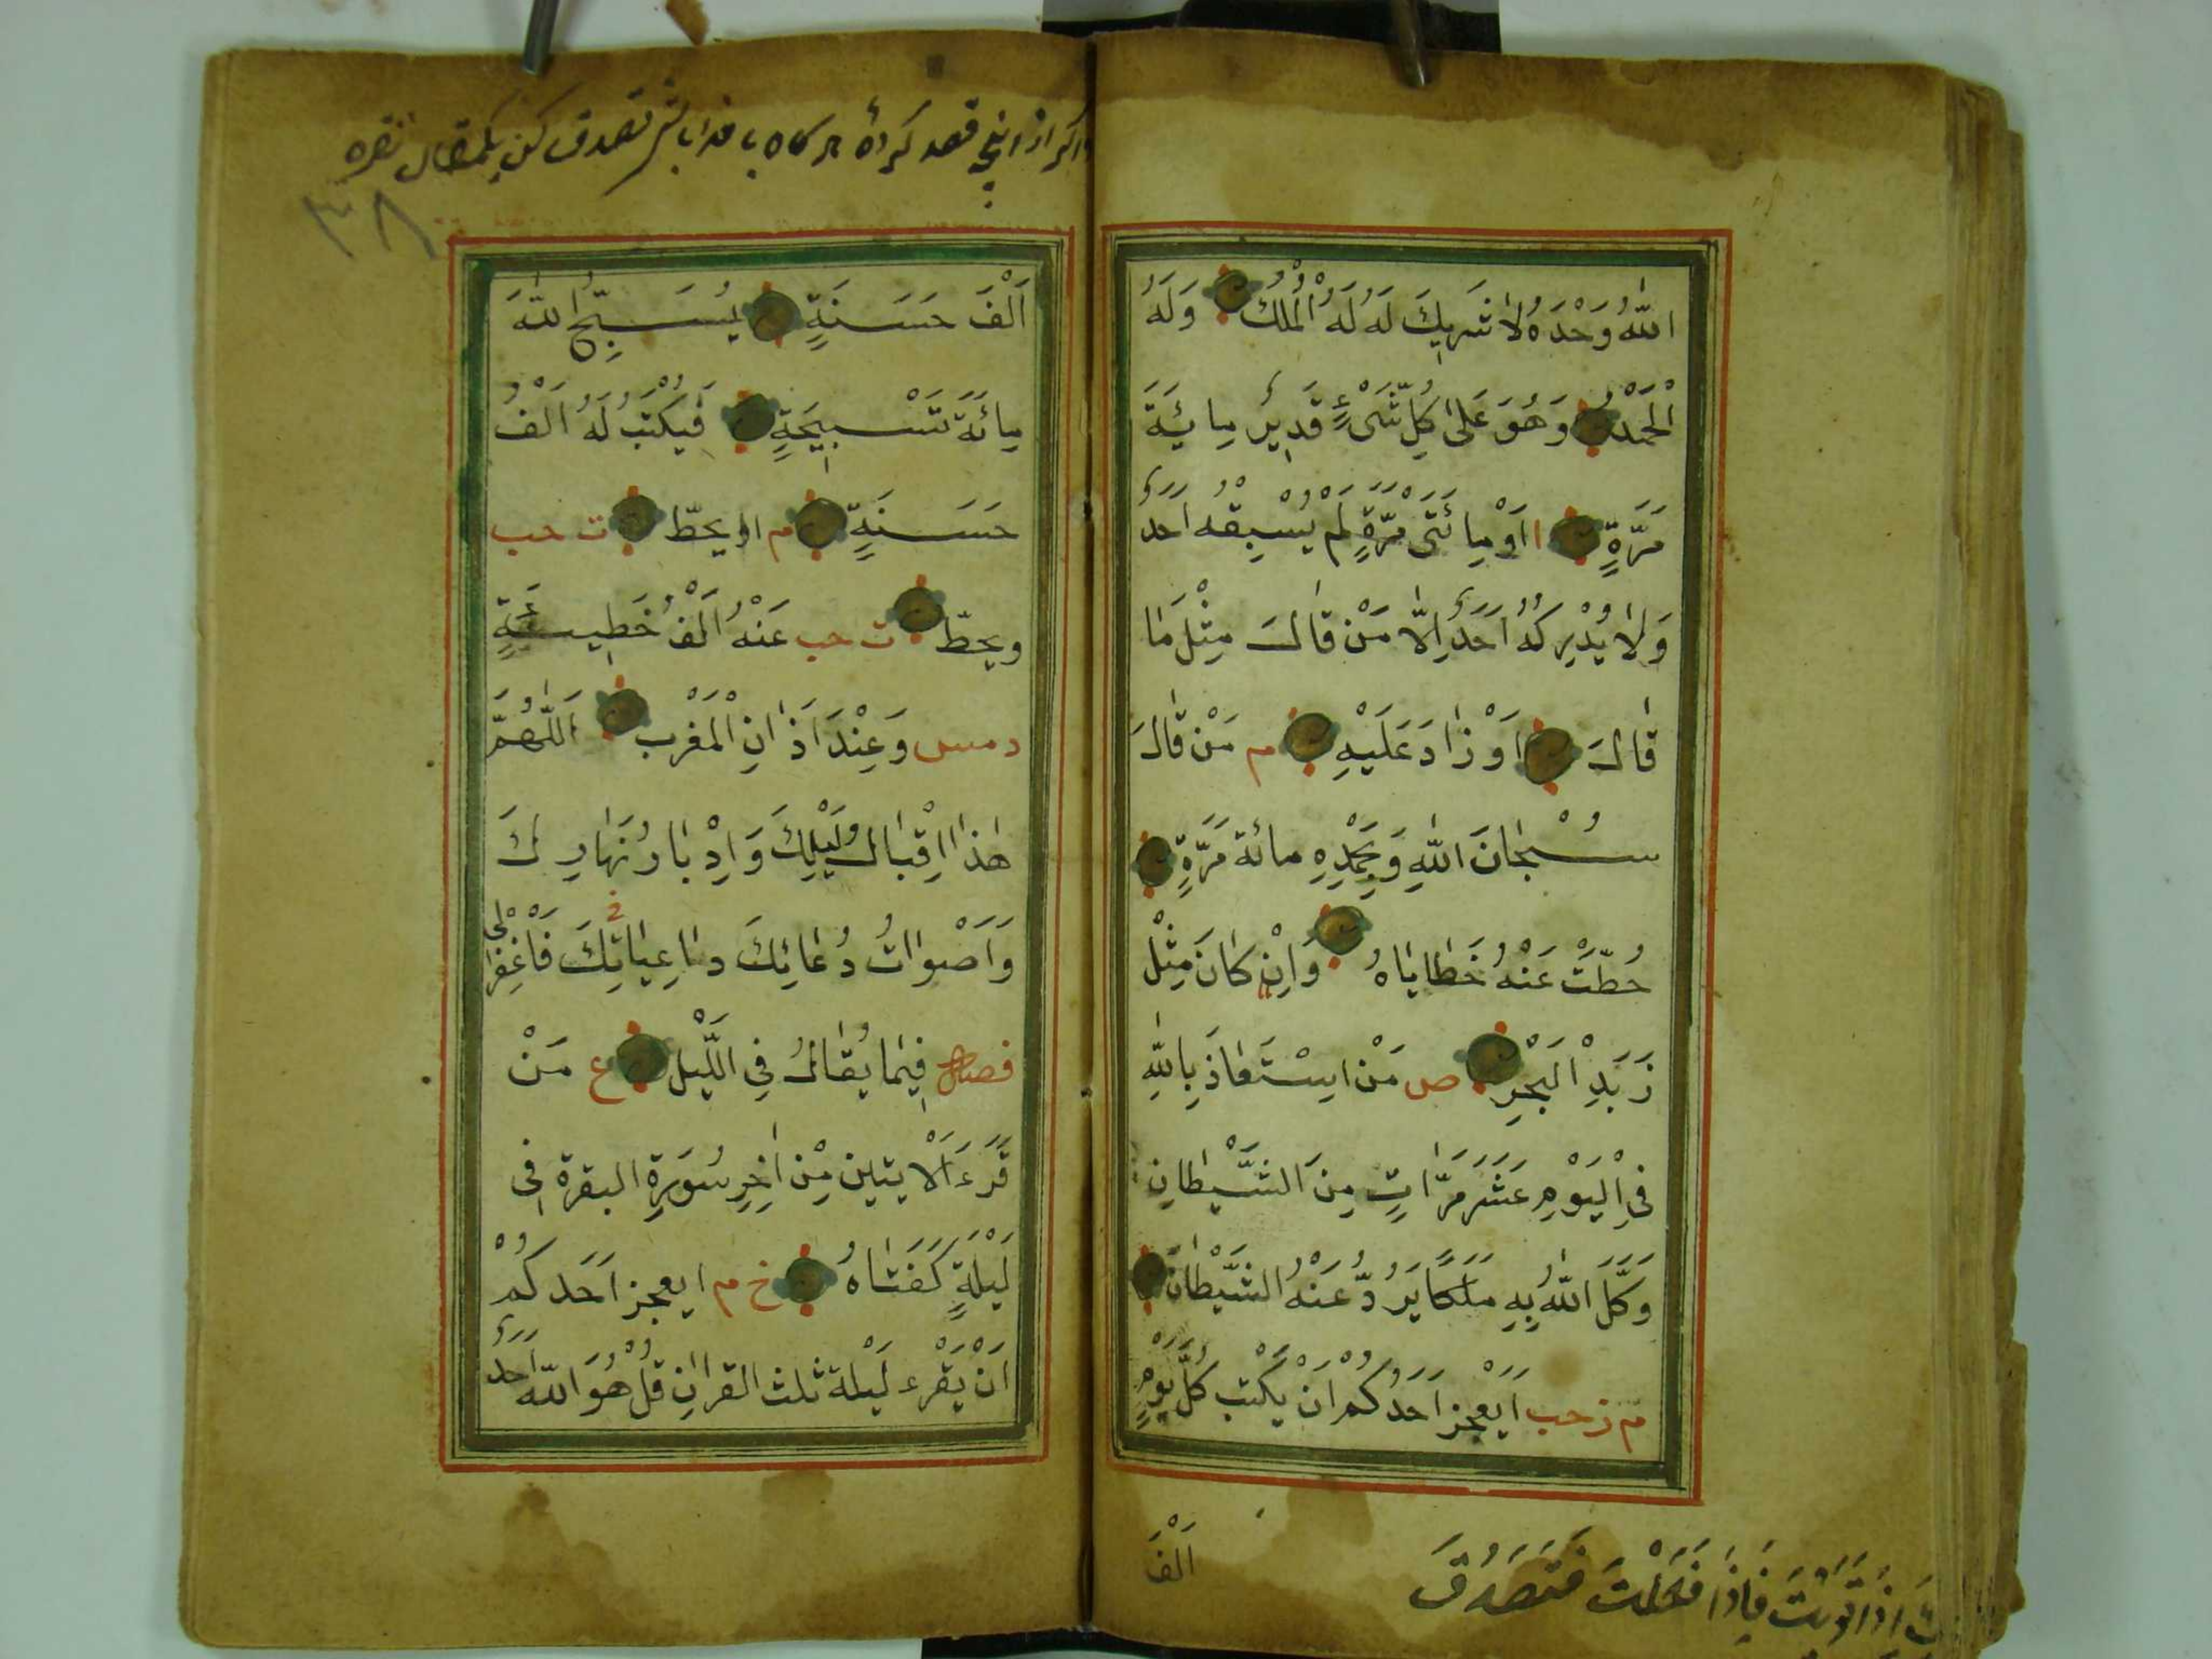 اَللّٰهُ وَحْدَهُ لَا شَرِيكَ لَهُ لَهُ الْمُلْكُ وَلَهُ
الْحَمْدُ وَهُوَ عَلٰى كُلِّ شَىْءٍ قَدِيرٌ مِائَةَ
مَرَّةٍ ا اَوْ مِائَتَىْ مَرَّةٍ لَمْ يَسْبِقْهُ اَحَدٌ
وَلَا يُدْرِكُهُ اَحَدٌ اِلَّا مَنْ قَالَ مِثْلَ مَا
قَالَ اَوْ زَادَ عَلَيْهِ م مَنْ قَالَ
سُبْحَانَ اللّٰهِ وَبِحَمْدِهِ مائة مَرَّةٍ
حُطَّتْ عَنْهُ خَطَايَاهُ وَاِنْ كَانَ مِثْلَ
زَبَدِ الْبَحْرِ ص مَنْ اسْتَعَاذَ بِاللّٰهِ
فِى الْيَوْمِ عَشَرَ مَرَّاتٍ مِنَ الشَّيْطَانِ
وَكَّلَ اللّٰهُ بِهِ مَلَكًا يَرُدُّ عَنْهُ الشَّيْطَانَ
م ز حب اَيعجز اَحَدُكُمْ اَنْ يَكْتِب كُلَّ يَوْمٍ
اَلْفَ
اِذَا فَاِذَا فَعَلْتَ فَتَصَدَّقَ
اكر از انچه قصد كردهٔ تصدق كن نقره
٣٨
اَلْفَ حَسَنَةٍ يُسَبِّحُ اللّٰهَ
مِائَةَ تَسْبِيحَةٍ فَيُكْتَبُ لَهُ اَلْفُ
حَسَنَةٍ م او يحطّ ت حب
ويحطّ ت حب عَنْهُ اَلْفُ خَطِيئَةٍ
د مس وَعِنْدَ اَذَانِ الْمَغْرِب اَللّٰهُمَّ
هٰذَا اِقْبَالُ لَيْلِكَ وَاِدْبَارُ نَهَارِكَ
وَاَصْوَاتُ دُعَائِكَ فَاغْفِرْ لِى
فصل فِيمَا يُقَالُ فِى اللَّيْلِ ع مَنْ
قَرَءَ الْاَيتين مِنْ اٰخِرِ سُورَةِ البقرة فى
لَيْلَةٍ كَفَتَاهُ خ م ايعجز اَحَدكُمْ
اَنْ يَقْرَء لَيْلة ثلث القرانِ قُلْ هُوَ اللّٰه اَحَدٌ